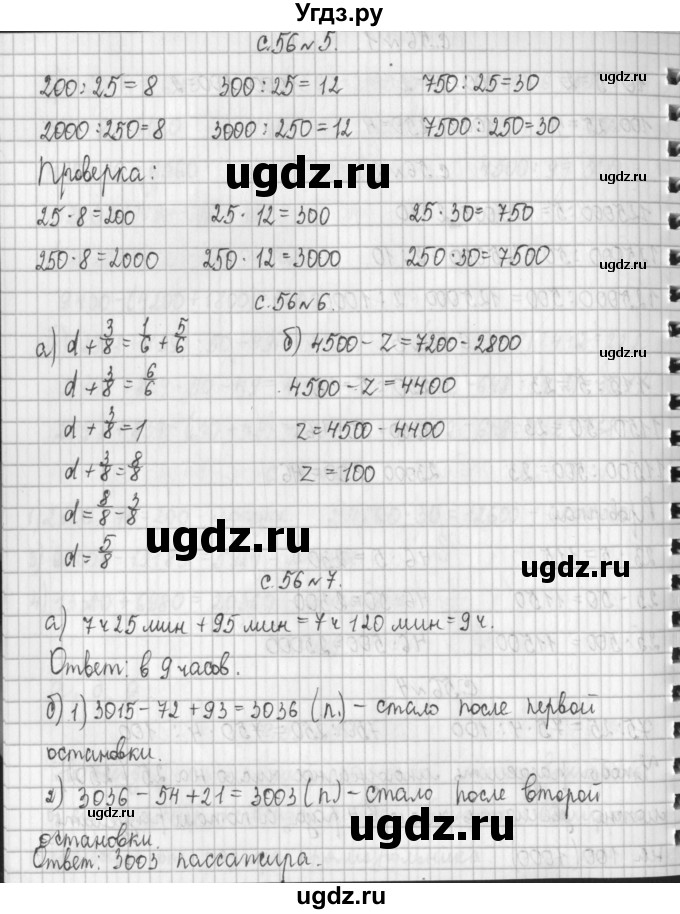 Угдз.ру
с.56 №5.
200 : 25 = 8 300 : 25 = 12 750 : 25 = 30
2000 : 250 = 8 3000 : 250 = 12 7500 : 250 = 30
Проверка:
25 · 8 = 200 25 · 12 = 300 25 · 30 = 750
250 · 8 = 2000 250 · 12 = 3000 250 · 30 = 7500
с.56 №6.
а) d + 3/8 = 1/6 + 5/6 б) 4500 - z = 7200 - 2800
d + 3/8 = 6/6 4500 - z = 4400
d + 3/8 = 1 z = 4500 - 4400
d + 3/8 = 8/8 z = 100
d = 8/8 - 3/8
d = 5/8
с.56 №7.
а) 7ч 25 мин + 95 мин = 7ч 120 мин = 9 ч.
Ответ: в 9 часов.
б) 1) 3015 - 72 + 93 = 3036 (п.) - стало после первой
остановки.
2) 3036 - 54 + 21 = 3003 (п) - стало после второй
остановки.
Ответ: 3003 пассажира.
ugdz.ru
ugdz.ru
ugdz.ru
ugdz.ru
ugdz.ru
ugdz.ru
ugdz.ru
ugdz.ru
ugdz.ru
ugdz.ru
ugdz.ru